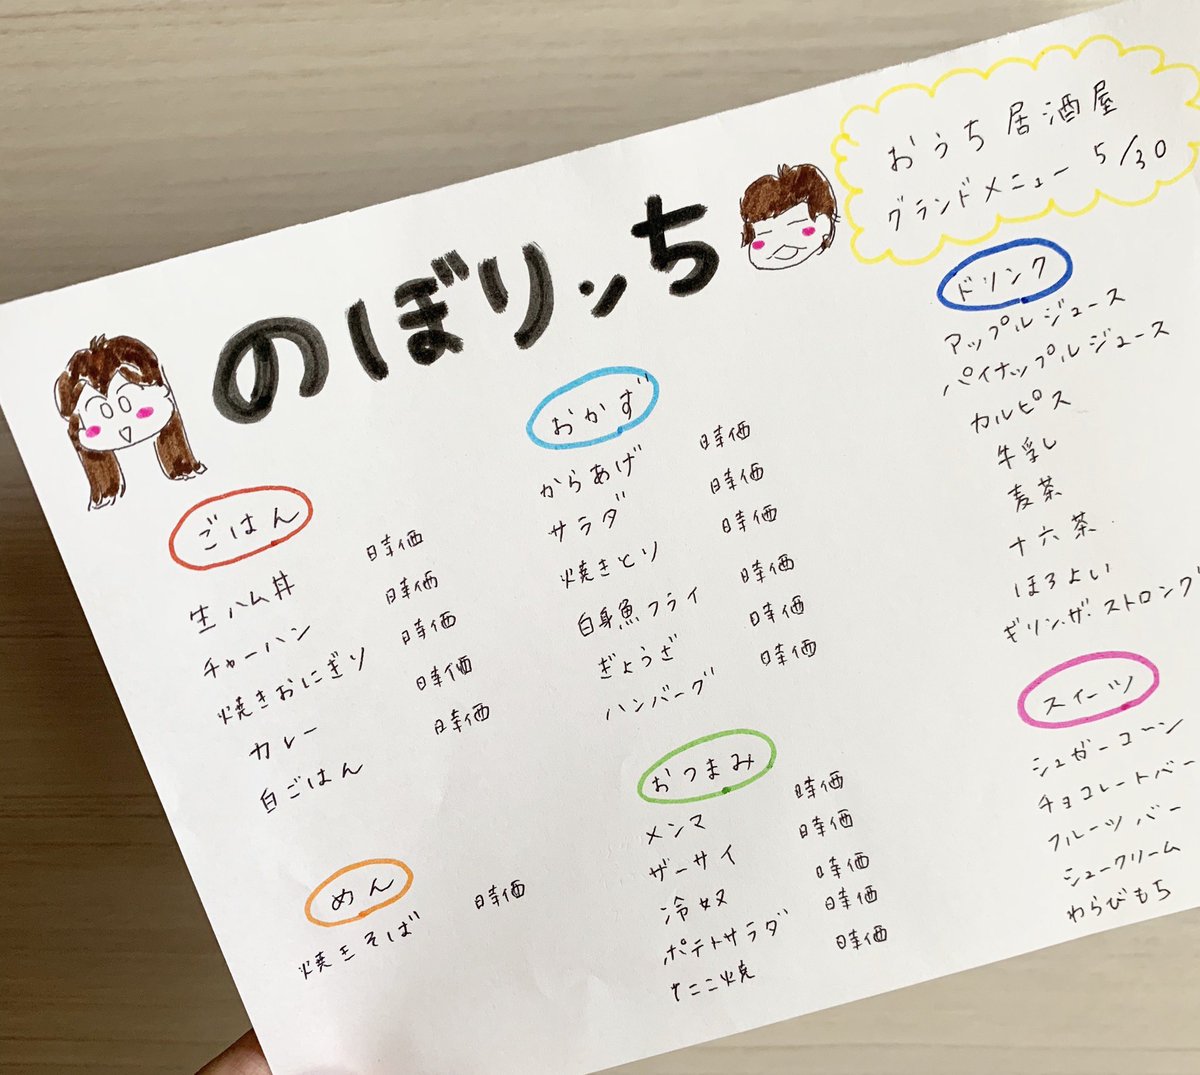 おうち居酒屋
グランドメニュー 5/30
のぼリンち
ごはん
生ハム丼 時価
チャーハン 時価
焼きおにぎり 時価
カレー 時価
白ごはん 時価
めん
焼きそば 時価
おかず
からあげ 時価
サラダ 時価
焼きとり 時価
白身魚フライ 時価
ぎょうざ 時価
ハンバーグ 時価
おつまみ
メンマ 時価
ザーサイ 時価
冷奴 時価
ポテトサラダ 時価
たこ焼 時価
ドリンク
アップルジュース
パイナップルジュース
カルピス
牛乳
麦茶
十六茶
ほろよい
キリン・ザ・ストロング
スイーツ
シュガーコーン
チョコレートバー
フルーツバー
シュークリーム
わらびもち